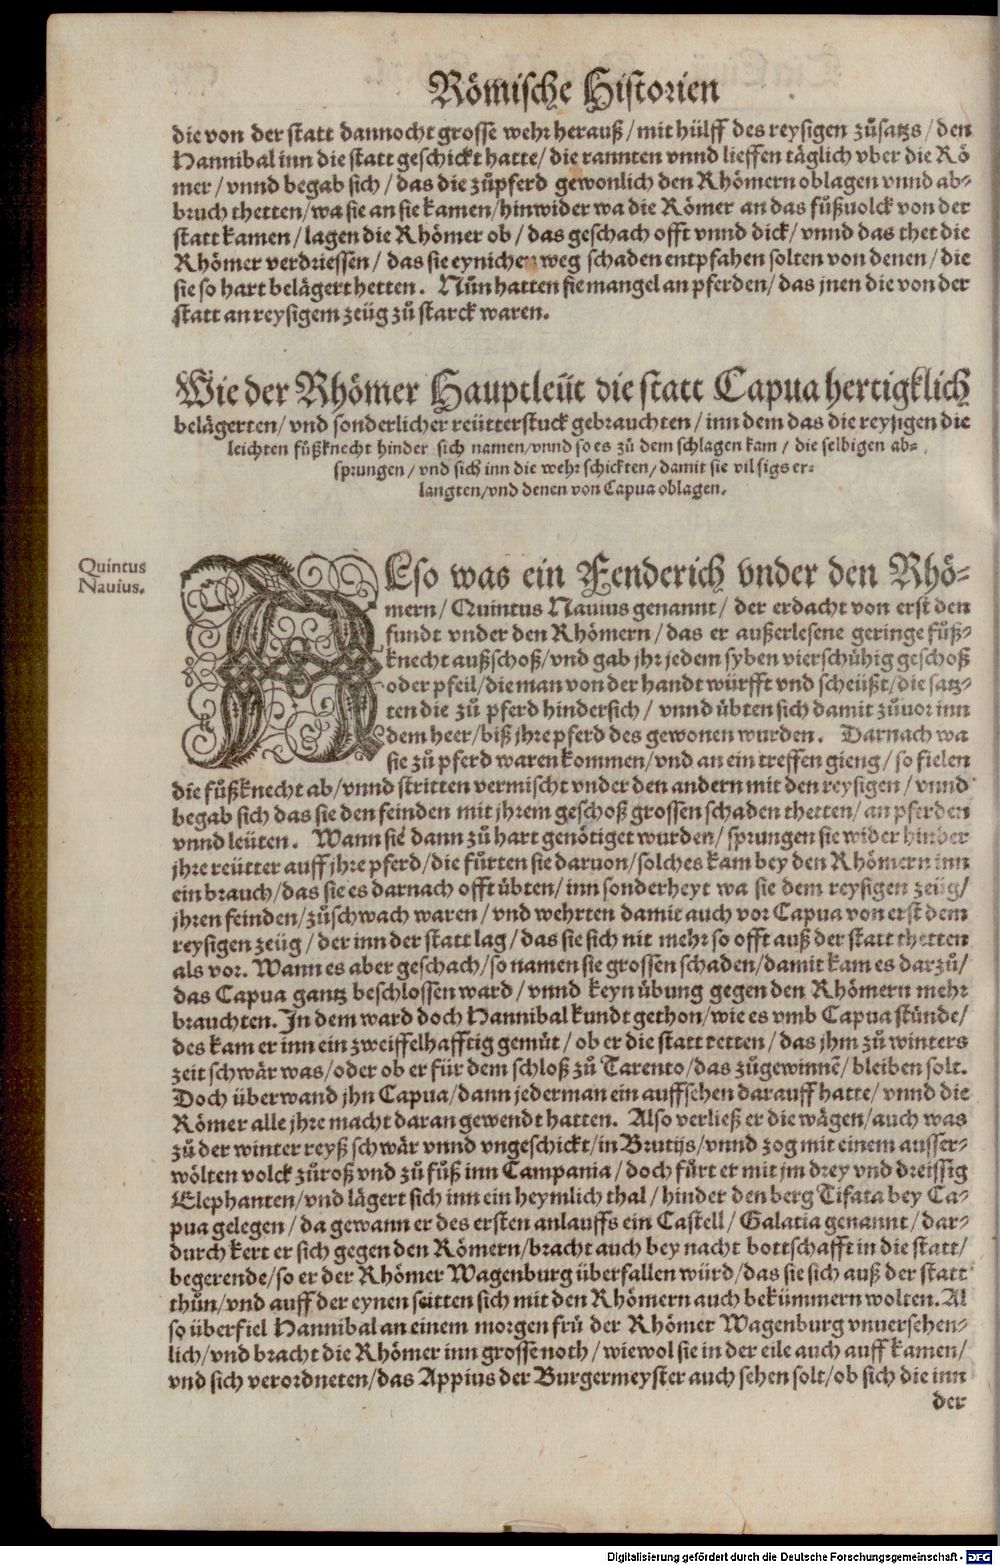 Römische Historien
die von der statt dannocht grosse wehr herauß / mit hülff des reysigen zůsatzs / den
Hannibal inn die statt geschickt hatte / die rannten vnnd lieffen täglich vber die Rö
mer / vnnd begab sich / das die zůpferd gewonlich den Rhömern oblagen vnnd ab-
bruch thetten / wa sie an sie kamen / hinwider wa die Römer an das fůßuolck von der
statt kamen / lagen die Rhömer ob / das geschach offt vnnd dick / vnnd das thet die
Rhömer verdriessen / das sie eynichen weg schaden entpfahen solten von denen / die
sie so hart belägert hetten. Nůn hatten sie mangel an pferden / das jnen die von der
statt an reysigem zeüg zů starck waren.
Wie der Rhömer Hauptleüt die statt Capua hertigklich
belägerten / vnd sonderlicher reütterstuck gebrauchten / inn dem das die reysigen die
leichten fůßknecht hinder sich namen / vnnd so es zů dem schlagen kam / die selbigen ab-
sprungen / vnd sich inn die wehr schickten / damit sie vil sigs er-
langten / vnd denen von Capua oblagen.
Quintus
Nauius.
ESo was ein Fenderich vnder den Rhö-
mern / Quintus Nauius genannt / der erdacht von erst den
fundt vnder den Rhömern / das er außerlesene geringe fůß-
knecht außschoß / vnd gab jhr jedem syben vierschůhig geschoß
oder pfeil / die man von der handt würfft vnd scheüßt / die satz-
ten die zů pferd hindersich / vnnd übten sich damit zůuor inn
dem heer / biß jhre pferd des gewonen wurden. Darnach wa
sie zů pferd waren kommen / vnd an ein treffen gieng / so fielen
die fůßknecht ab / vnnd stritten vermischt vnder den andern mit den reysigen / vnnd
begab sich das sie den feinden mit jhrem geschoß grossen schaden thetten / an pferden
vnnd leüten. Wann sie dann zů hart genötiget wurden / sprungen sie wider hinder
jhre reütter auff jhre pferd / die fůrten sie daruon / solches kam bey den Rhömern inn
ein brauch / das sie es darnach offt übten / inn sonderheyt wa sie dem reysigen zeüg /
jhren feinden / zůschwach waren / vnd wehrten damit auch vor Capua von erst dem
reysigen zeüg / der inn der statt lag / das sie sich nit mehr so offt auß der statt thetten
als vor. Wann es aber geschach / so namen sie grossen schaden / damit kam es darzů /
das Capua gantz beschlossen ward / vnnd keyn übung gegen den Rhömern mehr
brauchten. In dem ward doch Hannibal kundt gethon / wie es vmb Capua stůnde /
des kam er inn ein zweiffelhafftig gemůt / ob er die statt retten / das jhm zů winters
zeit schwär was / oder ob er für dem schloß zů Tarento / das zůgewinnē / bleiben solt.
Doch überwand jhn Capua / dann jederman ein auffsehen darauff hatte / vnnd die
Römer alle jhre macht daran gewendt hatten. Also verließ er die wägen / auch was
zů der winter reyß schwär vnnd vngeschickt / in Brutijs / vnnd zog mit einem ausser-
wölten volck zůroß vnd zů fůß inn Campania / doch fůrt er mit jm drey vnd dreissig
Elephanten / vnd lägert sich inn ein heymlich thal / hinder den berg Tifata bey Ca-
pua gelegen / da gewann er des ersten anlauffs ein Castell / Galatia genannt / dar-
durch kert er sich gegen den Römern / bracht auch bey nacht bottschafft in die statt /
begerende / so er der Rhömer Wagenburg überfallen würd / das sie sich auß der statt
thůn / vnd auff der eynen seitten sich mit den Rhömern auch bekümmern wolten. Al
so überfiel Hannibal an einem morgen frů der Rhömer Wagenburg vnuersehen-
lich / vnd bracht die Rhömer inn grosse noth / wiewol sie in der eile auch auff kamen /
vnd sich verordneten / das Appius der Burgermeyster auch sehen solt / ob sich die inn
der
Digitalisierung gefördert durch die Deutsche Forschungsgemeinschaft - DFG